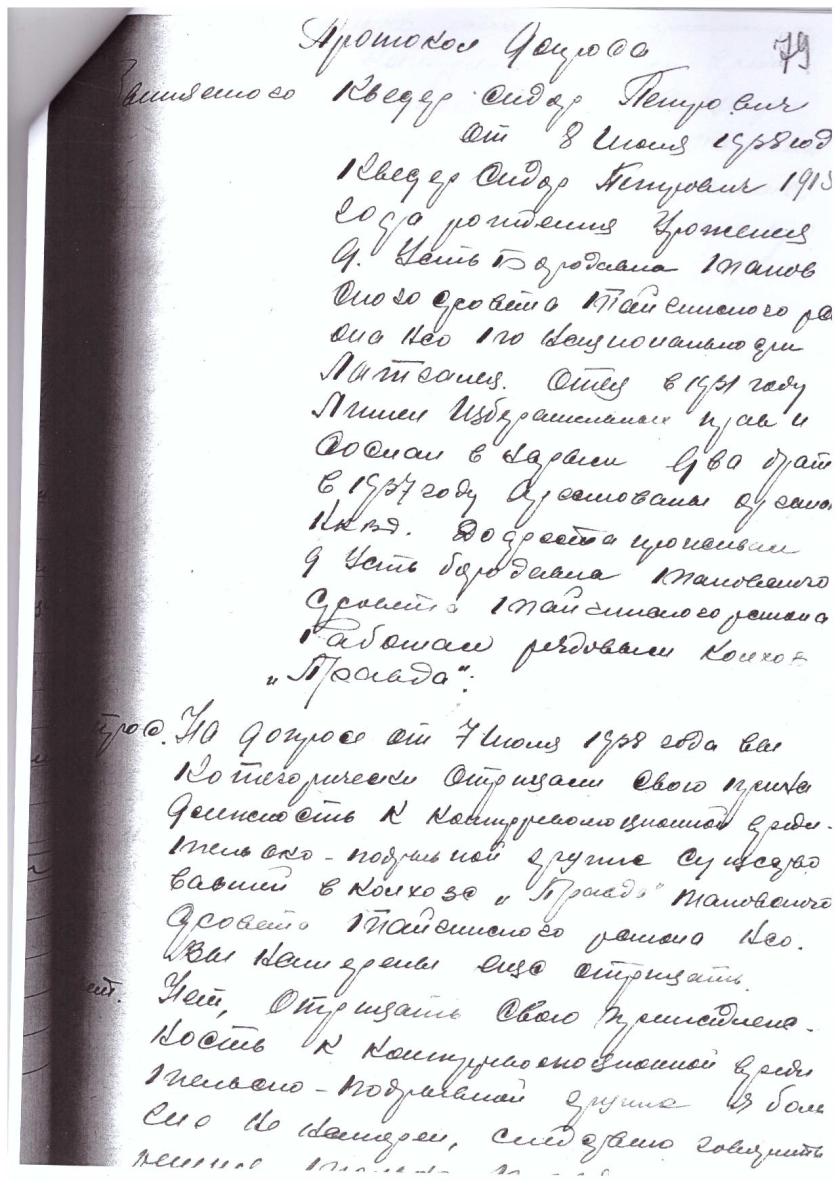 Протокол Допроса 79
Кведер Сидор Петрович
от 8 Июля 1938 год
Кведер Сидор Петрович 191
года рождения Уроженец
д. Усть Бородавка Танов
ского с/совета Тайшинского ра
она Ксо по Национальности
Латгалец. Отец в 1931 году
Лишен Избирательных прав и
Сослан в Нарым Два брат
в 1937 году Арестованы органа
НКВД. До ареста проживал
д Усть бородавка Тановского
с/совета района
Работал рядовым Колхоз
„Правда".
прос. На допросе от 7 Июля 1938 года вы
Категорически Отрицали Свою прина
длежность К Контрреволюционной вреди-
тельско-подрывной группе Существо
вавшей в Колхозе „Правда" Тановского
с/совета района Ксо.
Вы Намерены еще отрицать.
ет. Нет, Отрицать Свою принадлеж-
ность К Контрреволюционной вреди
тельско-подрывной группе я боль
ше Не Намерен, говорить
только